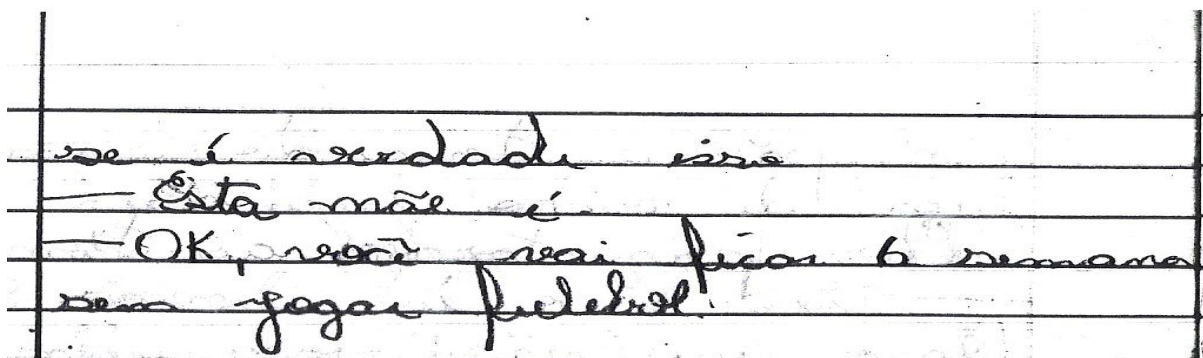 se é verdade isso
— Esta mãe é
— OK, você vai ficar 6 semana
sem jogar futebol.